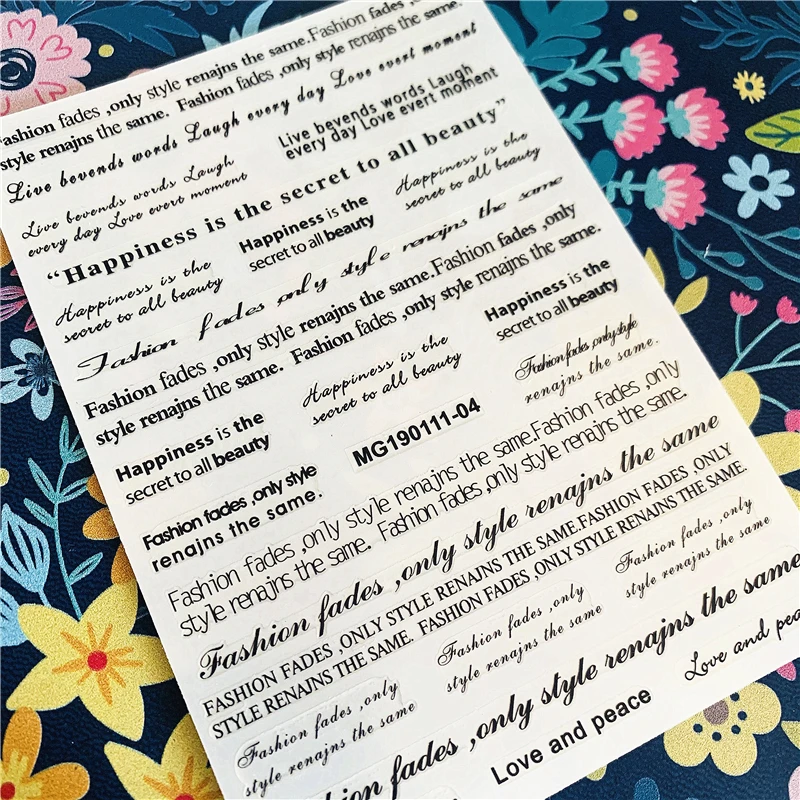 Fashion fades ,only style renajns the same.Fashion fades ,only
style renajns the same. Fashion fades ,only style renajns the same.
Live bevends words Laugh every day Love evert moment
Live bevends words Laugh
every day Love evert moment
Live bevends words Laugh
every day Love evert moment
“Happiness is the secret to all beauty”
Happiness is the
secret to all beauty
Happiness is the
secret to all beauty
Happiness is the
secret to all beauty
Fashion fades only style renajns the same
Fashion fades ,only style renajns the same.Fashion fades ,only
style renajns the same. Fashion fades ,only style renajns the same.
Happiness is the
secret to all beauty
Happiness is the
secret to all beauty
Fashion fades ,only style
renajns the same.
Happiness is the
secret to all beauty
MG190111-04
Fashion fades ,only style
renajns the same.
Fashion fades ,only style renajns the same.Fashion fades ,only
style renajns the same. Fashion fades ,only style renajns the same.
Fashion fades ,only style renajns the same
FASHION FADES ,ONLY STYLE RENAJNS THE SAME.FASHION FADES ,ONLY
STYLE RENAJNS THE SAME. FASHION FADES ,ONLY STYLE RENAJNS THE SAME.
Fashion fades ,only
style renajns the same
Fashion fades ,only
style renajns the same
Fashion fades ,only
style renajns the same
hion fades ,only style renajns the same
Love and peace
Love and pea